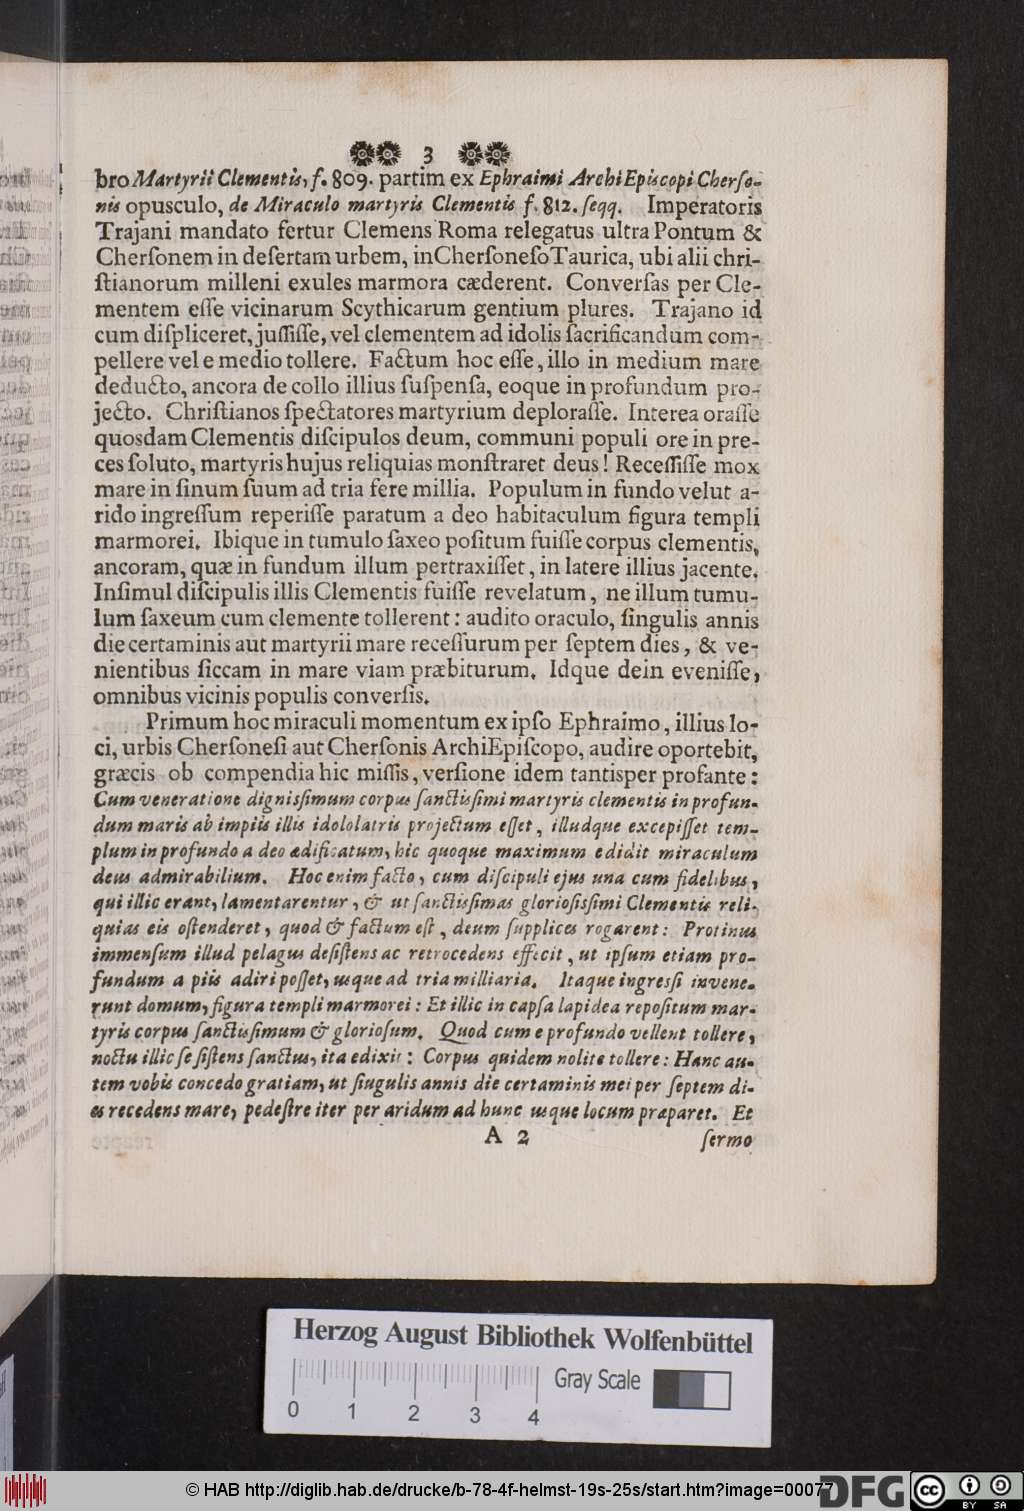 3
bro Martyrii Clementis, f. 809. partim ex Ephraimi ArchiEpiscopi Cherſo-
nis opusculo, de Miraculo martyris Clementis f. 812. ſeqq. Imperatoris
Trajani mandato fertur Clemens Roma relegatus ultra Pontum &
Cherſonem in deſertam urbem, inCherſoneſoTaurica, ubi alii chri-
ſtianorum milleni exules marmora cæderent. Converſas per Cle-
mentem eſſe vicinarum Scythicarum gentium plures. Trajano id
cum diſpliceret, juſſiſſe, vel clementem ad idolis ſacrificandum com-
pellere vel e medio tollere. Factum hoc eſſe, illo in medium mare
deducto, ancora de collo illius ſuſpenſa, eoque in profundum pro-
jecto. Chriſtianos ſpectatores martyrium deploraſſe. Interea oraſſe
quosdam Clementis diſcipulos deum, communi populi ore in pre-
ces ſoluto, martyris hujus reliquias monſtraret deus! Receſſiſſe mox
mare in ſinum ſuum ad tria fere millia. Populum in fundo velut a-
rido ingreſſum reperiſſe paratum a deo habitaculum figura templi
marmorei. Ibique in tumulo ſaxeo poſitum fuiſſe corpus clementis,
ancoram, quæ in fundum illum pertraxiſſet, in latere illius jacente.
Inſimul diſcipulis illis Clementis fuiſſe revelatum, ne illum tumu-
lum ſaxeum cum clemente tollerent: audito oraculo, ſingulis annis
die certaminis aut martyrii mare receſſurum per ſeptem dies, & ve-
nientibus ſiccam in mare viam præbiturum. Idque dein eveniſſe,
omnibus vicinis populis converſis.
Primum hoc miraculi momentum ex ipſo Ephraimo, illius lo-
ci, urbis Cherſoneſi aut Cherſonis ArchiEpiſcopo, audire oportebit,
græcis ob compendia hic miſſis, verſione idem tantisper profante:
Cum veneratione dignisſimum corpus ſanctisſimi martyris clementis in profun-
dum maris ab impiis illis idololatris projectum eſſet, illudque excepiſſet tem-
plum in profundo a deo ædificatum, hic quoque maximum edidit miraculum
deus admirabilium. Hoc enim facto, cum diſcipuli ejus una cum fidelibus,
qui illic erant, lamentarentur, & ut ſanctisſimas glorioſisſimi Clementis reli-
quias eis oſtenderet, quod & factum eſt, deum ſupplices rogarent: Protinus
immenſum illud pelagus deſiſtens ac retrocedens effecit, ut ipſum etiam pro-
fundum a piis adiri poſſet, usque ad tria milliaria. Itaque ingreſſi invene-
runt domum, figura templi marmorei: Et illic in capſa lapidea repoſitum mar-
tyris corpus ſanctisſimum & glorioſum. Quod cum e profundo vellent tollere,
noctu illic ſe ſiſtens ſanctus, ita edixit: Corpus quidem nolite tollere: Hanc au-
tem vobis concedo gratiam, ut ſingulis annis die certaminis mei per ſeptem di-
es recedens mare, pedeſtre iter per aridum ad hunc usque locum præparet. Et
A 2 ſermo
Herzog August Bibliothek Wolfenbüttel
Gray Scale
0 1 2 3 4
© HAB http://diglib.hab.de/drucke/b-78-4f-helmst-19s-25s/start.htm?image=00077
DFG
cc BY SA